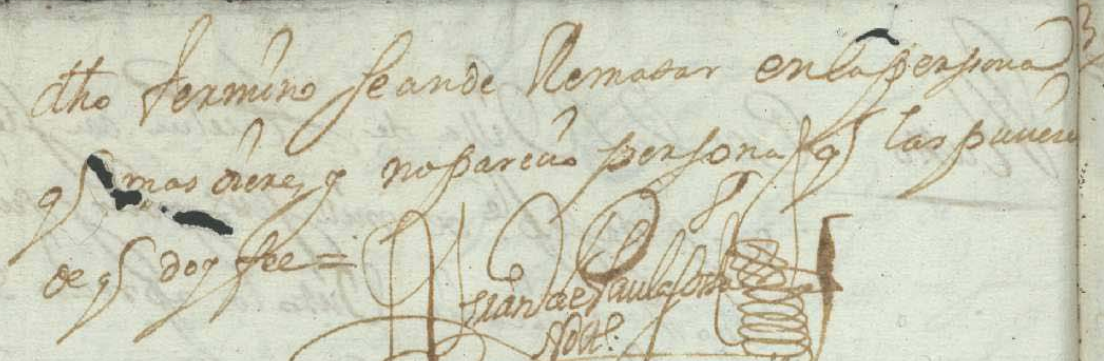 dho termino se ande Rematar en la persona
q mas diere y no parecio persona q las pusiese
de q doy fee =
Juan de Paula
Nott.